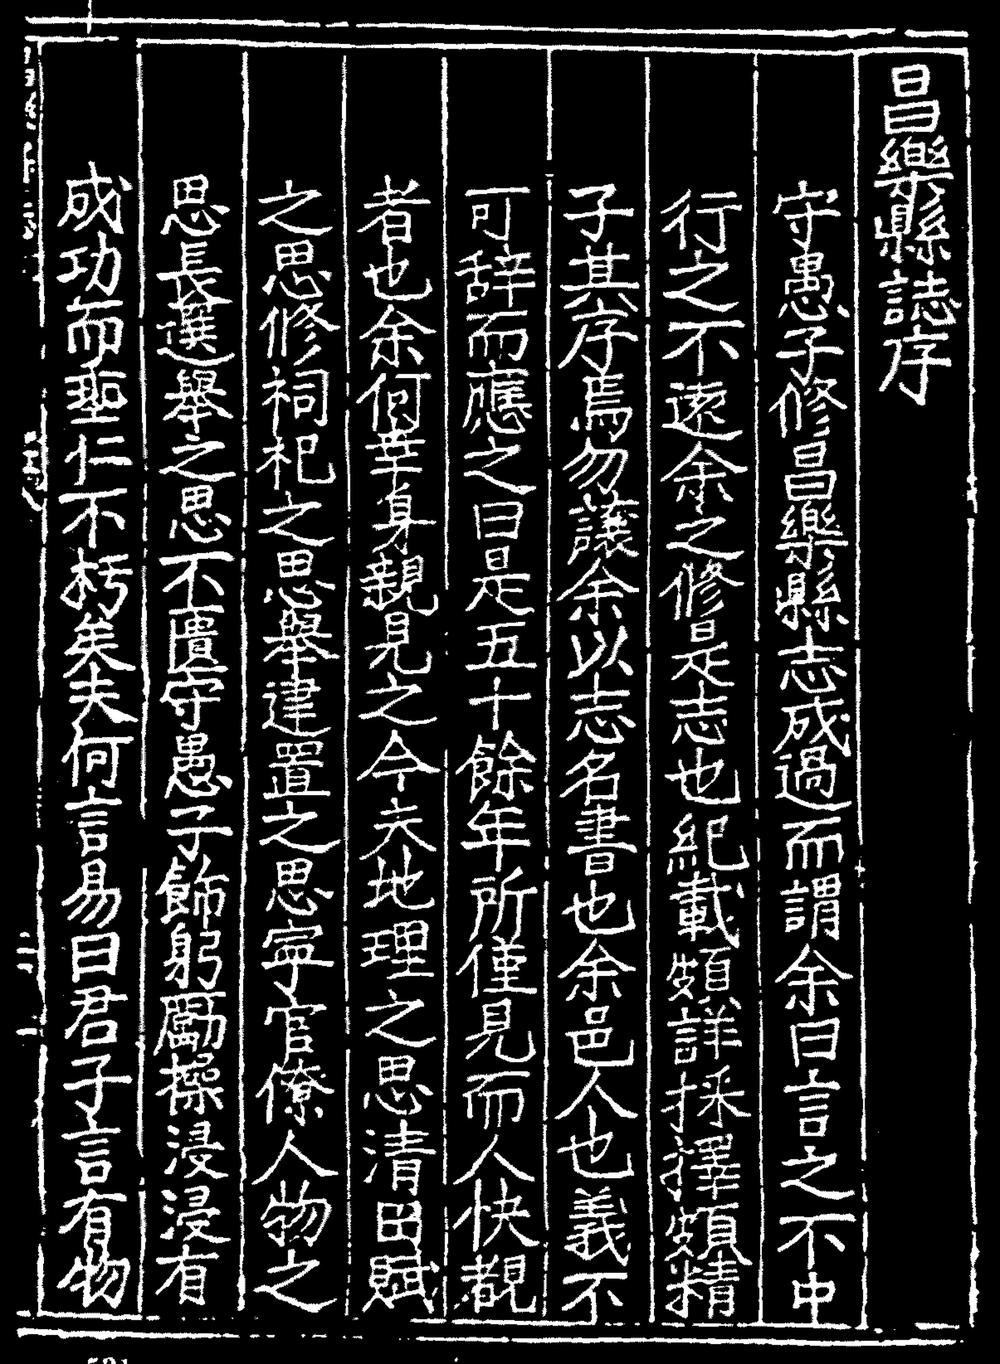 昌樂縣誌序
守愚子修昌樂縣志成過而謂余曰言之不中
行之不遠余之修是志也紀載頗詳採擇頗精
子其序焉勿讓余以志名書也余邑人也義不
可辞而應之曰是五十餘年所僅見而人快覩
者也余何幸身親見之今夫地理之思清田賦
之思修祠祀之思舉建置之思寧官僚人物之
思長選舉之思不匱守愚子飾躬勵操浸浸有
成功而聖仁不朽矣夫何言易曰君子言有物